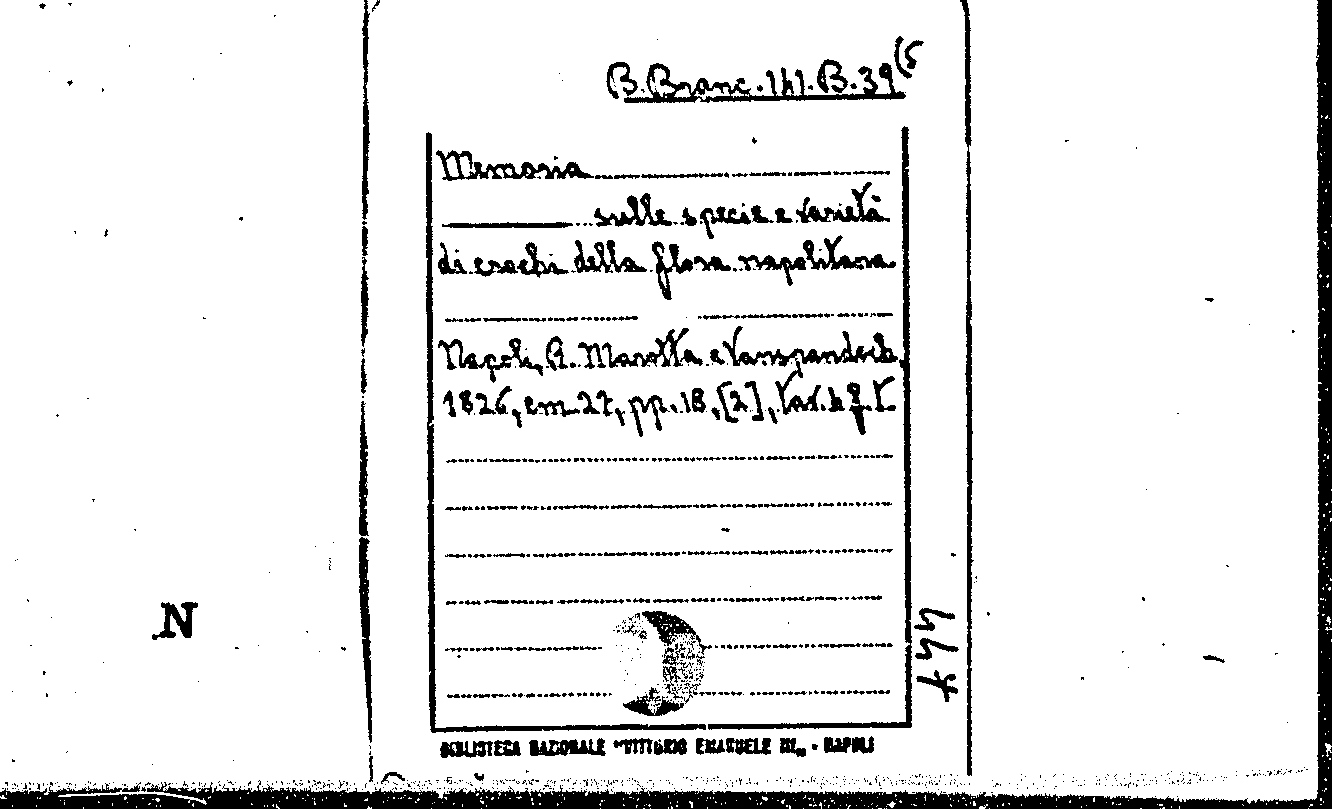 B. Branc. 141. B. 39(5
Memoria
sulle specie e varietà
di crochi della flora napolitana
Napoli, A. Marotta e Vanspandoch,
1826, cm 27, pp. 18, [2], tav. 4 f. t.
447
N
BIBLIOTECA NAZIONALE "VITTORIO EMANUELE III„ - NAPOLI